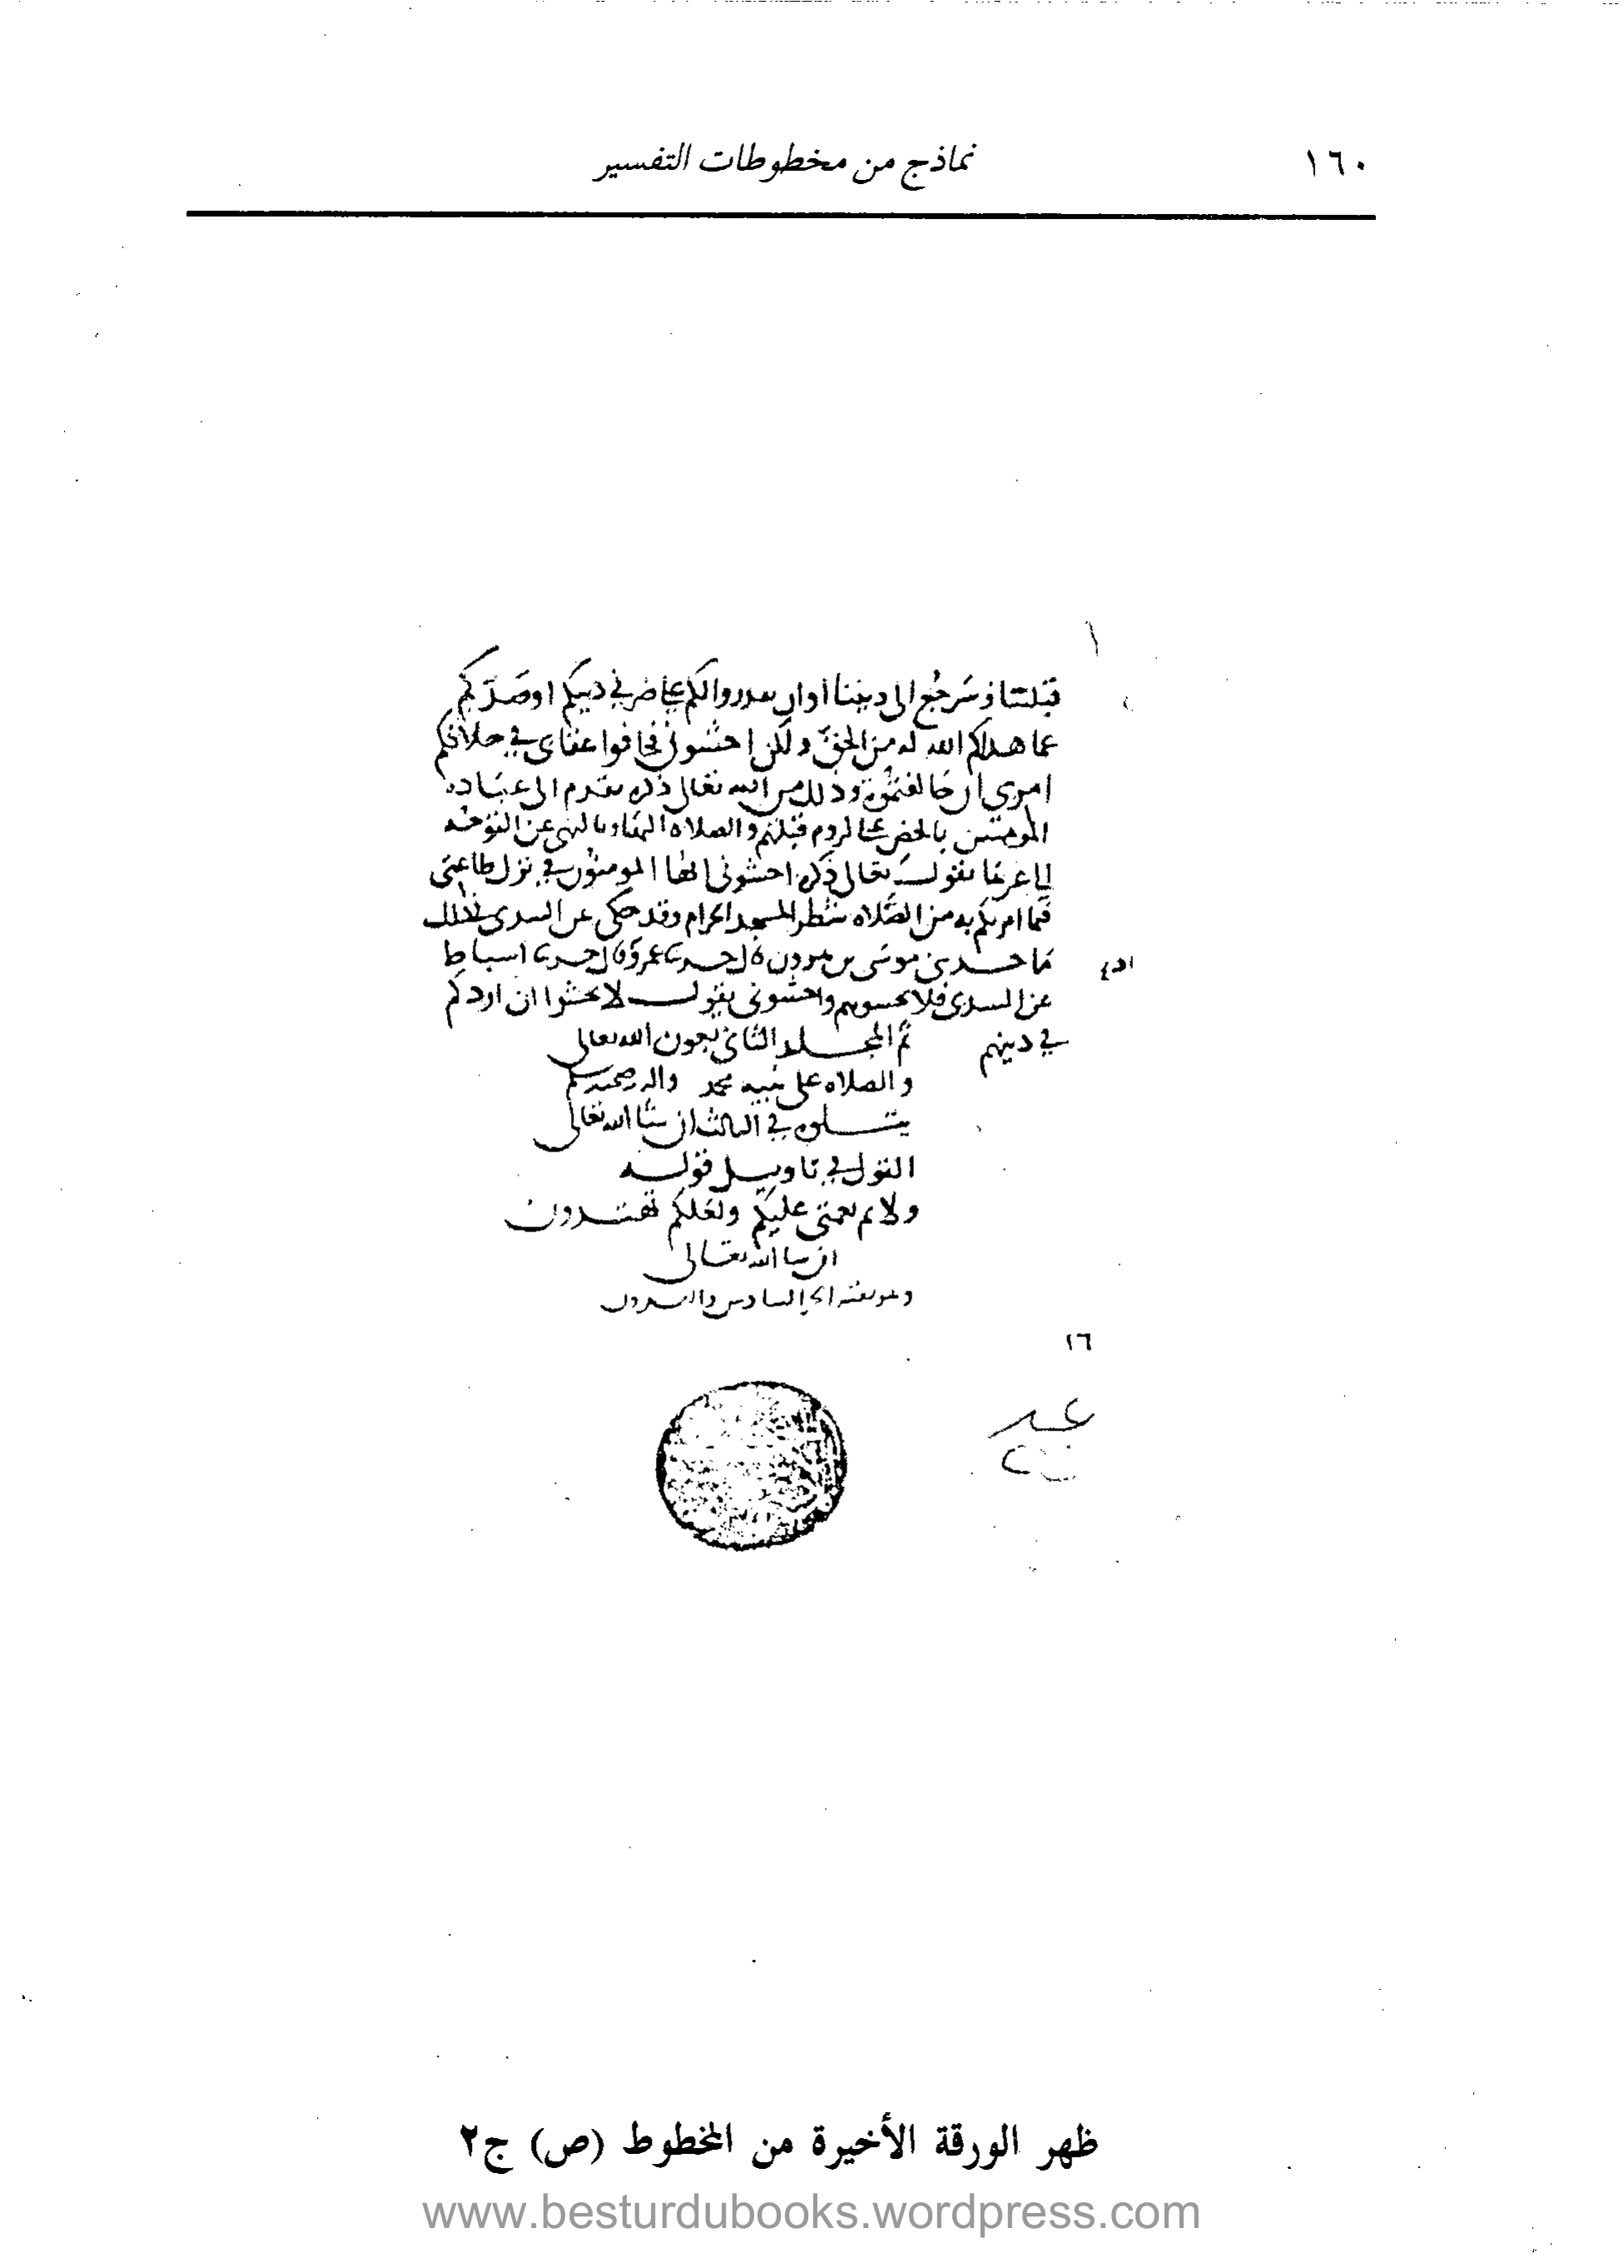 ١٦٠
نماذج من مخطوطات التفسير
قبلتنا وسَرجُع الى ديننا اوان علىكم في دينكم اوصدّكم
عما هداكم الله له من الحق ولكن احشونى فخافوا عقابى في خلافكم
امرى ان خالفتموه وذلك من الله تعالى ذكره تقدم الى عباده
المومنين بالحض على لزوم قبلتهم والصلاه اليها وبالنهى عن التوجه
الى غيرها يقول تعالى ذكره احشونى ايها المومنون في ترك طاعتى
فيما امرتكم به من الصّلاه شطر المسجد الحرام وقد حكى عن السدى
موسى بن هرون عمرو اسباط
عن السدى فلا تحسوهم واحشونى يقول لا تحشوا ان اردكم
في دينهم
تم المجلد الثانى بعون الله تعالى
والصلاه على نبيه محمد واله وصحبه وسلم
يتلوه في الثالث ان شا الله تعالى
القول في تاويل قوله
ولاتم نعمتى عليكم ولعلكم تهتدون
ان سا الله تعالى
السادس والعسرون
١٦
ظهر الورقة الأخيرة من المخطوط (ص) ج٢
www.besturdubooks.wordpress.com